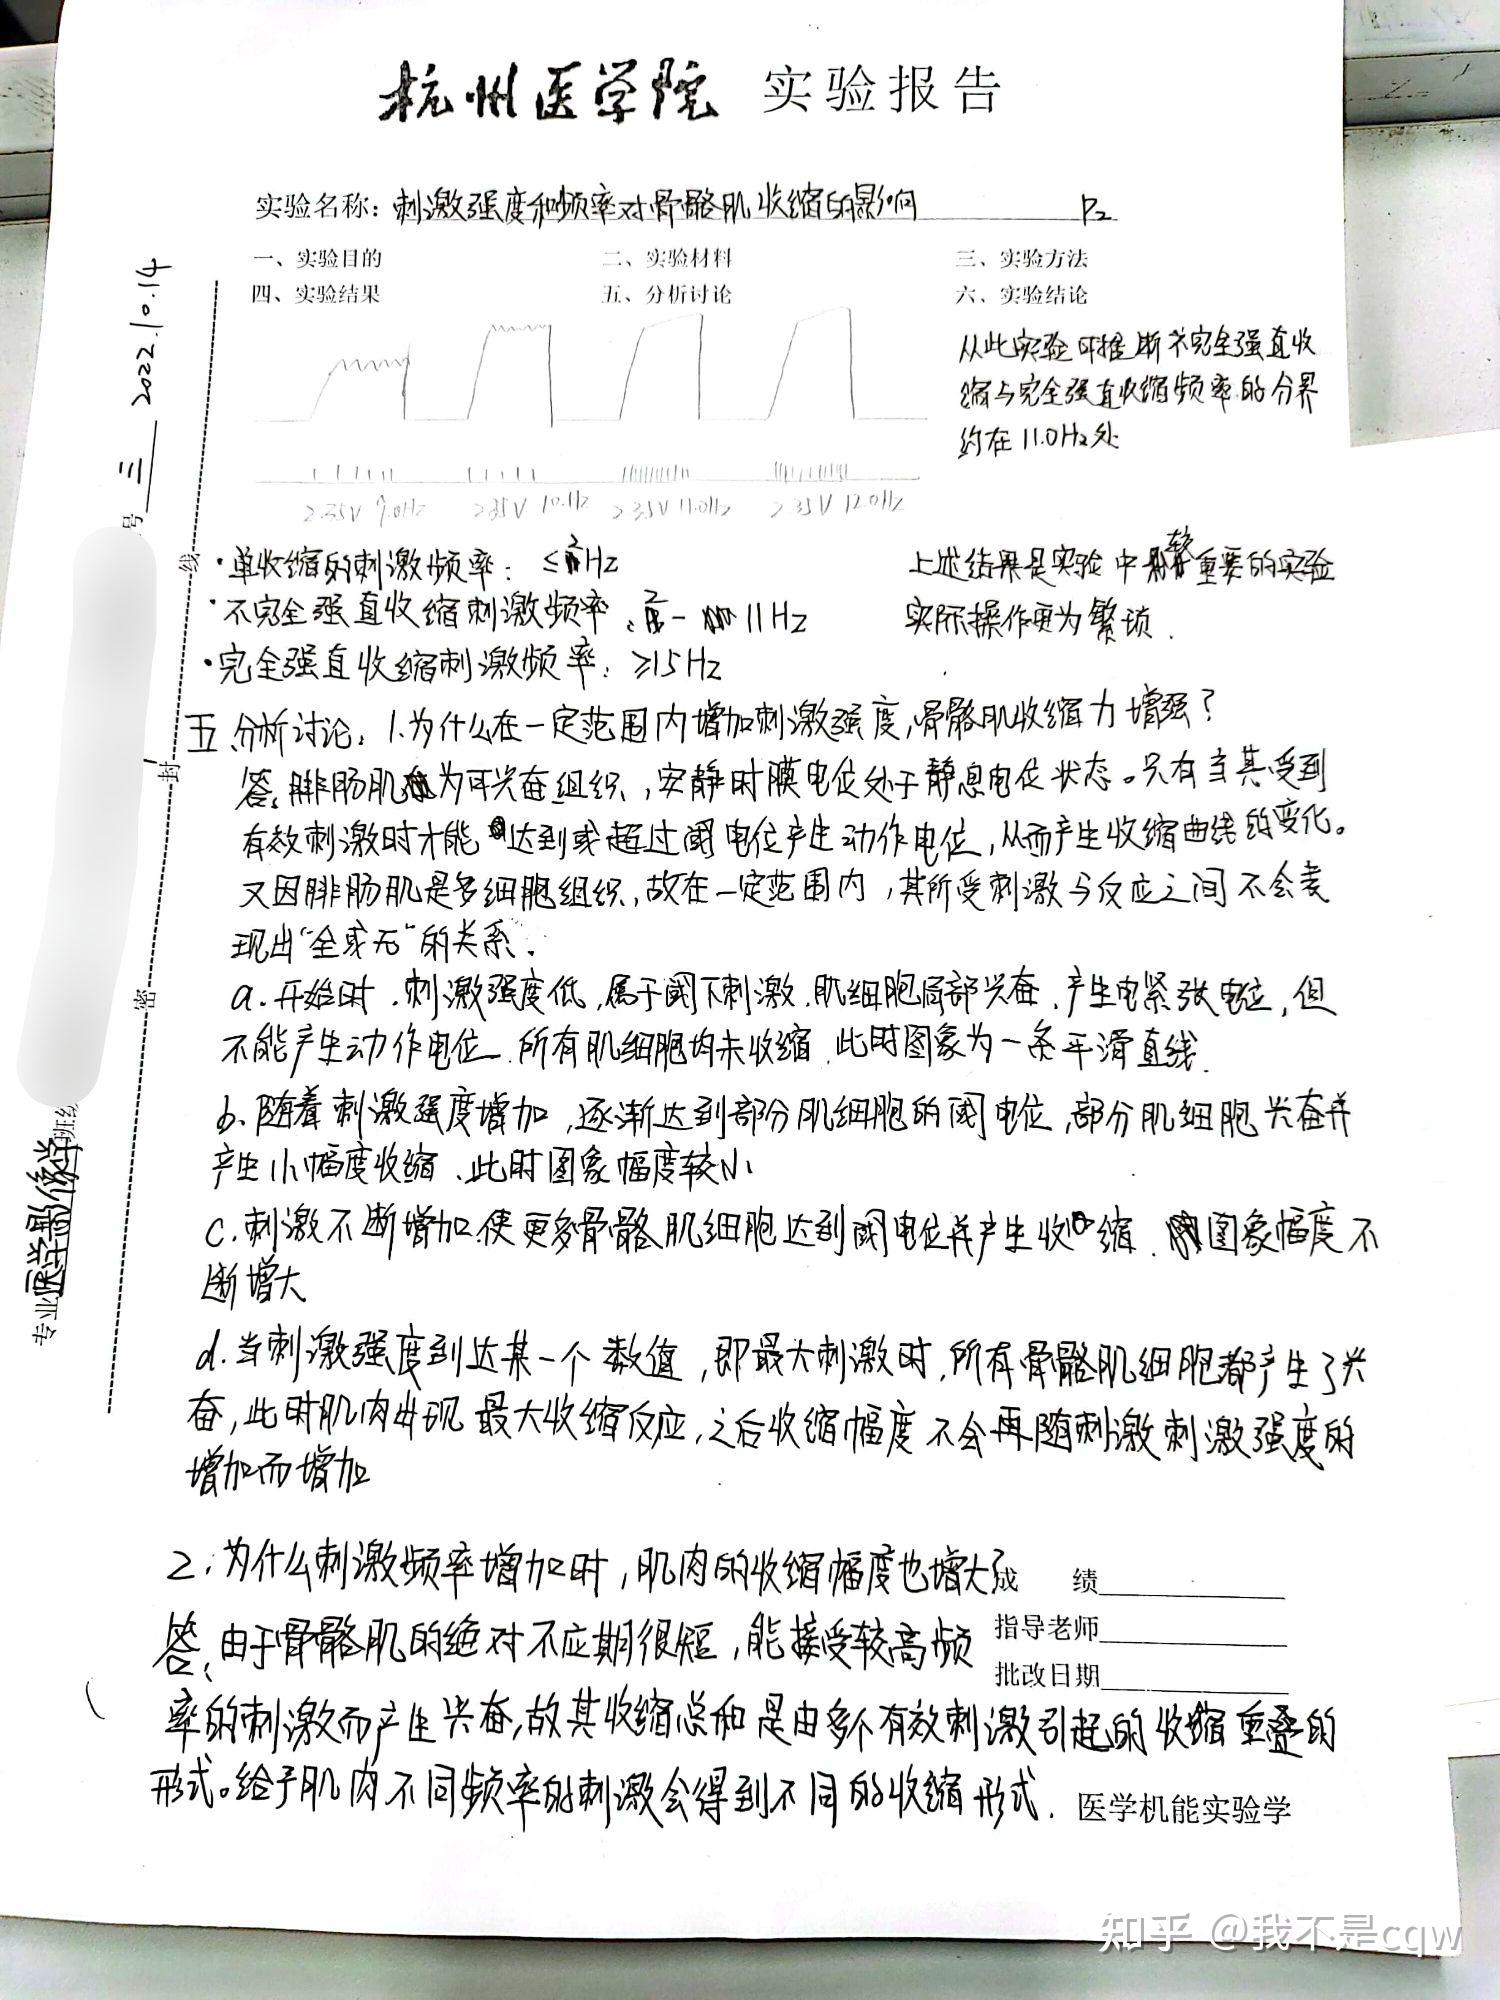 杭州医学院 实验报告
实验名称:刺激强度和频率对骨骼肌收缩的影响 P2
一、实验目的 二、实验材料 三、实验方法
四、实验结果 五、分析讨论 六、实验结论
从此实验可推断不完全强直收
缩与完全强直收缩频率的分界
约在11.0Hz处
2.35V 9.0Hz 2.35V 10.Hz 2.35V 11.0Hz 2.35V 12.0Hz
·单收缩的刺激频率: ≤2Hz
·不完全强直收缩刺激频率:2-11Hz
·完全强直收缩刺激频率:≥15Hz
上述结果是实验中较重要的实验
实际操作更为繁琐.
五.分析讨论:1.为什么在一定范围内增加刺激强度,骨骼肌收缩力增强?
答:腓肠肌为可兴奋组织,安静时膜电位处于静息电位状态。只有当其受到
有效刺激时才能达到或超过阈电位产生动作电位,从而产生收缩曲线的变化。
又因腓肠肌是多细胞组织,故在一定范围内,其所受刺激与反应之间不会表
现出“全或无”的关系.
a.开始时.刺激强度低,属于阈下刺激.肌细胞局部兴奋.产生电紧张电位,但
不能产生动作电位.所有肌细胞均未收缩.此时图象为一条平滑直线.
b.随着刺激强度增加,逐渐达到部分肌细胞的阈电位,部分肌细胞兴奋并
产生小幅度收缩.此时图象幅度较小
c.刺激不断增加.使更多骨骼肌细胞达到阈电位并产生收缩.图象幅度不
断增大
d.当刺激强度到达某一个数值,即最大刺激时,所有骨骼肌细胞都产生了兴
奋,此时肌肉出现最大收缩反应,之后收缩幅度不会再随刺激刺激强度的
增加而增加
2.为什么刺激频率增加时,肌肉的收缩幅度也增大?
答:由于骨骼肌的绝对不应期很短,能接受较高频
率的刺激而产生兴奋,故其收缩总和是由多个有效刺激引起的收缩重叠的
形式。给予肌肉不同频率的刺激会得到不同的收缩形式.
成 绩
指导老师
批改日期
医学机能实验学
专业医学影像学班级
号 三 2022.10.14
密 封 线
知乎 @我不是cqw